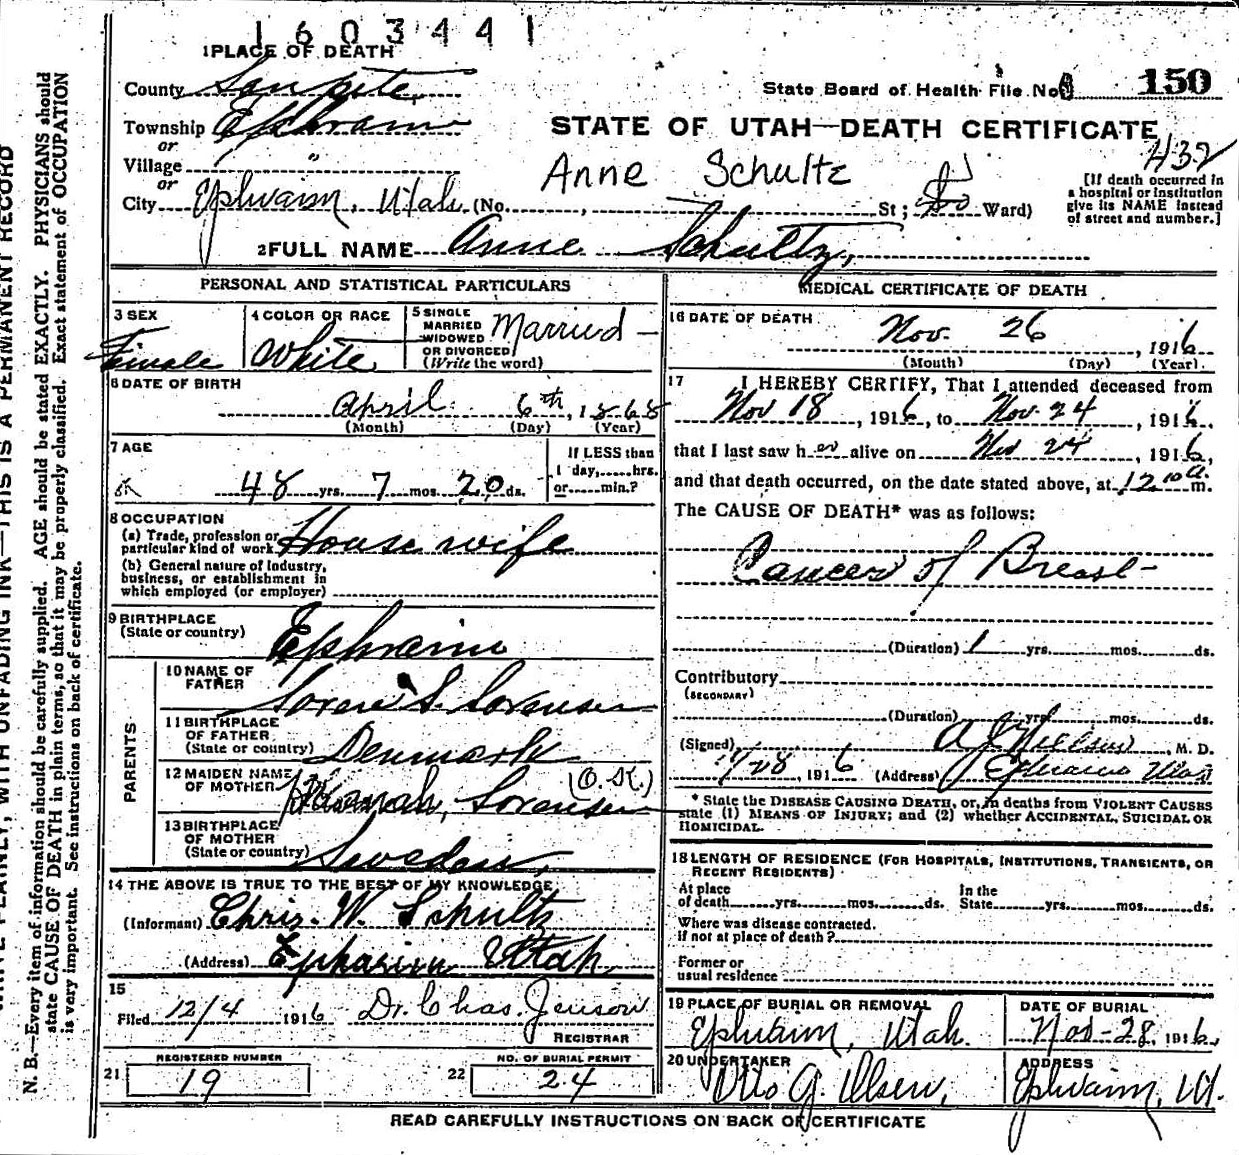 1603441
1 PLACE OF DEATH
County Sanpete,
State Board of Health File No. 150
Township Ephraim
or
Village "
or
City Ephraim, Utah (No. , St; Ward)
STATE OF UTAH—DEATH CERTIFICATE
432
Anne Schultz
[If death occurred in
a hospital or institution
give its NAME instead
of street and number.]
2 FULL NAME Anne Schultz,
PERSONAL AND STATISTICAL PARTICULARS
3 SEX
Female
4 COLOR OR RACE
White
5 SINGLE
MARRIED
WIDOWED
OR DIVORCED
(Write the word)
Married
6 DATE OF BIRTH
April 6th, 1868
(Month) (Day) (Year)
7 AGE
48 yrs. 7 mos. 20 ds.
If LESS than
1 day,......hrs.
or......min.?
8 OCCUPATION
(a) Trade, profession or
particular kind of work House wife
(b) General nature of industry,
business, or establishment in
which employed (or employer)
9 BIRTHPLACE
(State or country) Ephraim
PARENTS
10 NAME OF
FATHER
Soren S. Sorensen
11 BIRTHPLACE
OF FATHER
(State or country) Denmark
12 MAIDEN NAME
OF MOTHER
Hannah, Sorensen (O.K.)
13 BIRTHPLACE
OF MOTHER
(State or country) Sweden,
14 THE ABOVE IS TRUE TO THE BEST OF MY KNOWLEDGE
(Informant) Chris. W. Schultz
(Address) Ephraim Utah,
15
Filed 12/4 1916 Dr. Chas. Jenson
REGISTRAR
REGISTERED NUMBER
21 19
NO. OF BURIAL PERMIT
22 24
MEDICAL CERTIFICATE OF DEATH
16 DATE OF DEATH
Nov. 26, 1916
(Month) (Day) (Year)
17 I HEREBY CERTIFY, That I attended deceased from
Nov 18, 1916, to Nov. 24, 1916,
that I last saw her alive on Nov 24, 1916,
and that death occurred, on the date stated above, at 12 10 a.m.
The CAUSE OF DEATH* was as follows:
Cancer of Breast
(Duration) 1 yrs. mos. ds.
Contributory
(SECONDARY)
(Duration) yrs. mos. ds.
(Signed) A J Nielson, M. D.
11/28, 1916 (Address) Ephraim Utah
* State the DISEASE CAUSING DEATH, or, in deaths from VIOLENT CAUSES
state (1) MEANS OF INJURY; and (2) whether ACCIDENTAL, SUICIDAL OR
HOMICIDAL.
18 LENGTH OF RESIDENCE (FOR HOSPITALS, INSTITUTIONS, TRANSIENTS, OR
RECENT RESIDENTS)
At place
of death yrs. mos. ds.
In the
State yrs. mos. ds.
Where was disease contracted.
if not at place of death?
Former or
usual residence
19 PLACE OF BURIAL OR REMOVAL
Ephraim, Utah.
DATE OF BURIAL
Nov-28, 1916,
20 UNDERTAKER
Otto G. Olsen,
ADDRESS
Ephraim, Ut.
READ CAREFULLY INSTRUCTIONS ON BACK OF CERTIFICATE
WRITE PLAINLY, WITH UNFADING INK—THIS IS A PERMANENT RECORD
N. B.—Every item of information should be carefully supplied. AGE should be stated EXACTLY. PHYSICIANS should
state CAUSE OF DEATH in plain terms, so that it may be properly classified. Exact statement of OCCUPATION
is very important. See instructions on back of certificate.